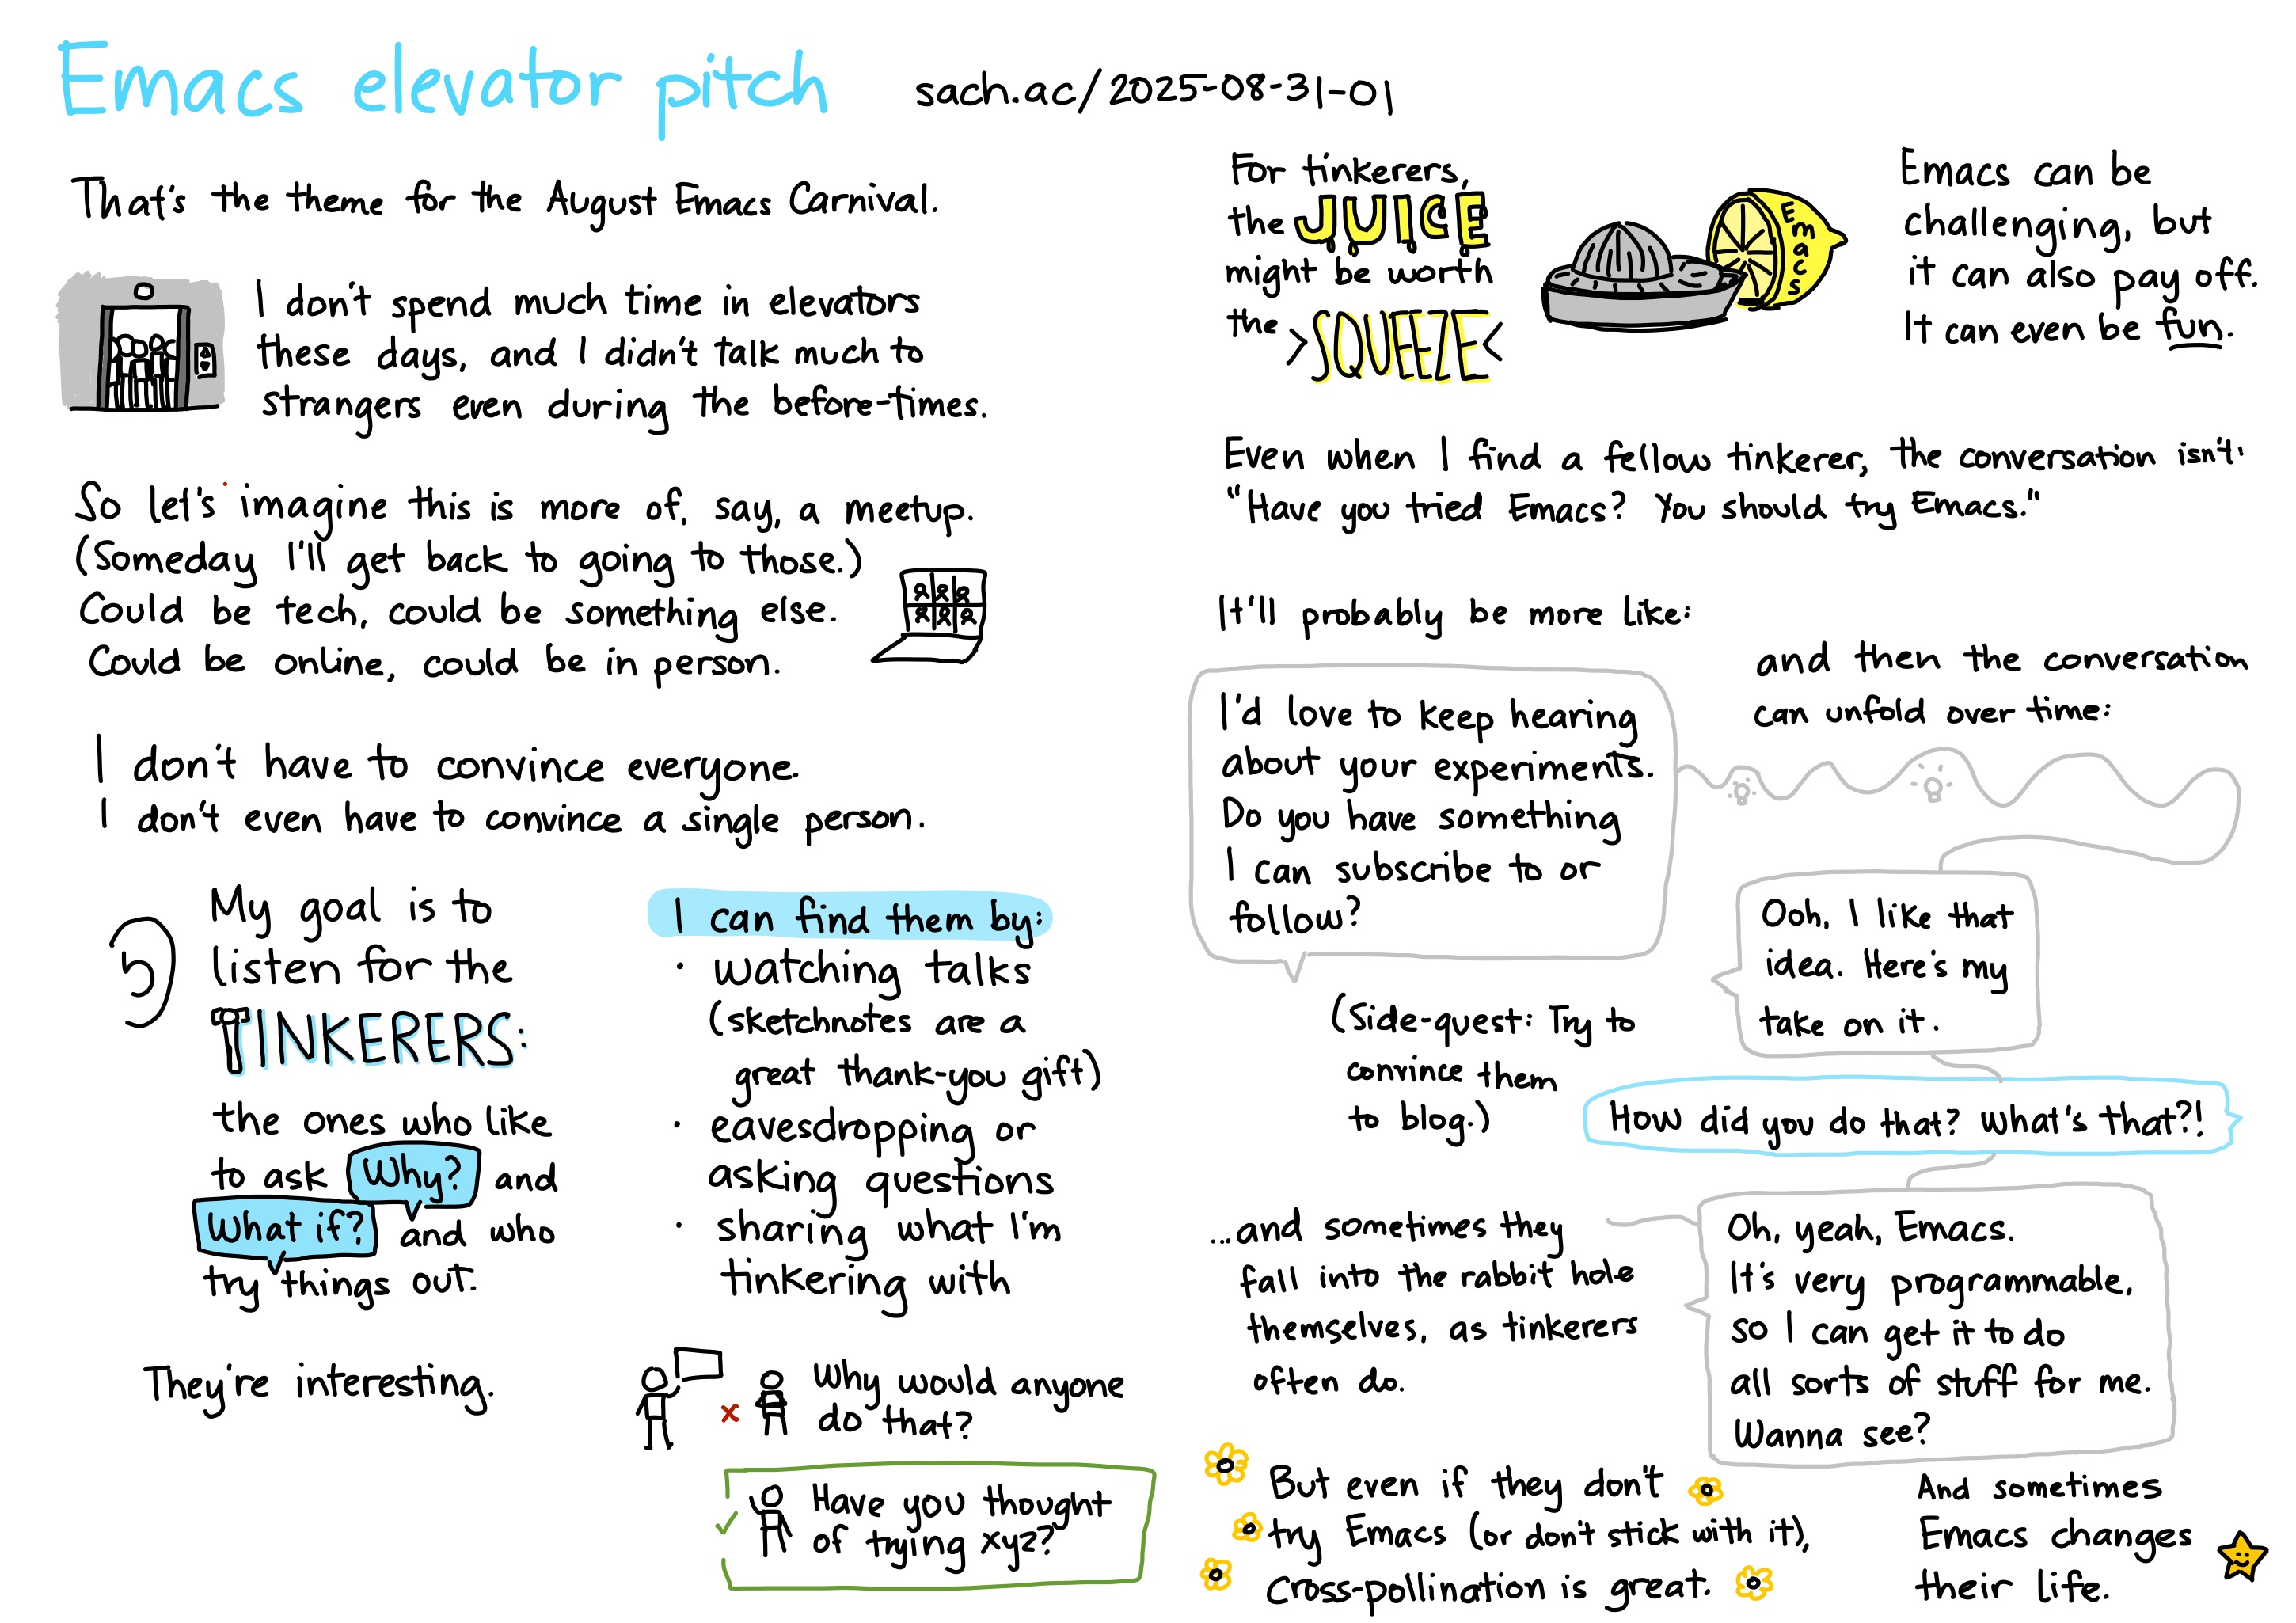 Emacs elevator pitch
sach.ac/2025-08-31-01
That's the theme for the August Emacs Carnival.
I don't spend much time in elevators
these days, and I didn't talk much to
strangers even during the before-times.
So let's imagine this is more of, say, a meetup.
(Someday I'll get back to going to those.)
Could be tech, could be something else.
Could be online, could be in person.
I don't have to convince everyone.
I don't even have to convince a single person.
My goal is to
listen for the
TINKERERS:
the ones who like
to ask Why? and
What if? and who
try things out.
They're interesting.
I can find them by:
· watching talks
(sketchnotes are a
great thank-you gift)
· eavesdropping or
asking questions
· sharing what I'm
tinkering with
x Why would anyone
do that?
✓ Have you thought
of trying xyz?
For tinkerers,
the JUICE
might be worth
the >SQUEEZE<
Emacs
Emacs can be
challenging, but
it can also pay off.
It can even be fun.
Even when I find a fellow tinkerer, the conversation isn't:
"Have you tried Emacs? You should try Emacs."
It'll probably be more like:
I'd love to keep hearing
about your experiments.
Do you have something
I can subscribe to or
follow?
(Side-quest: Try to
convince them
to blog.)
and then the conversation
can unfold over time:
Ooh, I like that
idea. Here's my
take on it.
How did you do that? What's that?!
Oh, yeah, Emacs.
It's very programmable,
so I can get it to do
all sorts of stuff for me.
Wanna see?
...and sometimes they
fall into the rabbit hole
themselves, as tinkerers
often do.
But even if they don't
try Emacs (or don't stick with it),
cross-pollination is great.
And sometimes
Emacs changes
their life.